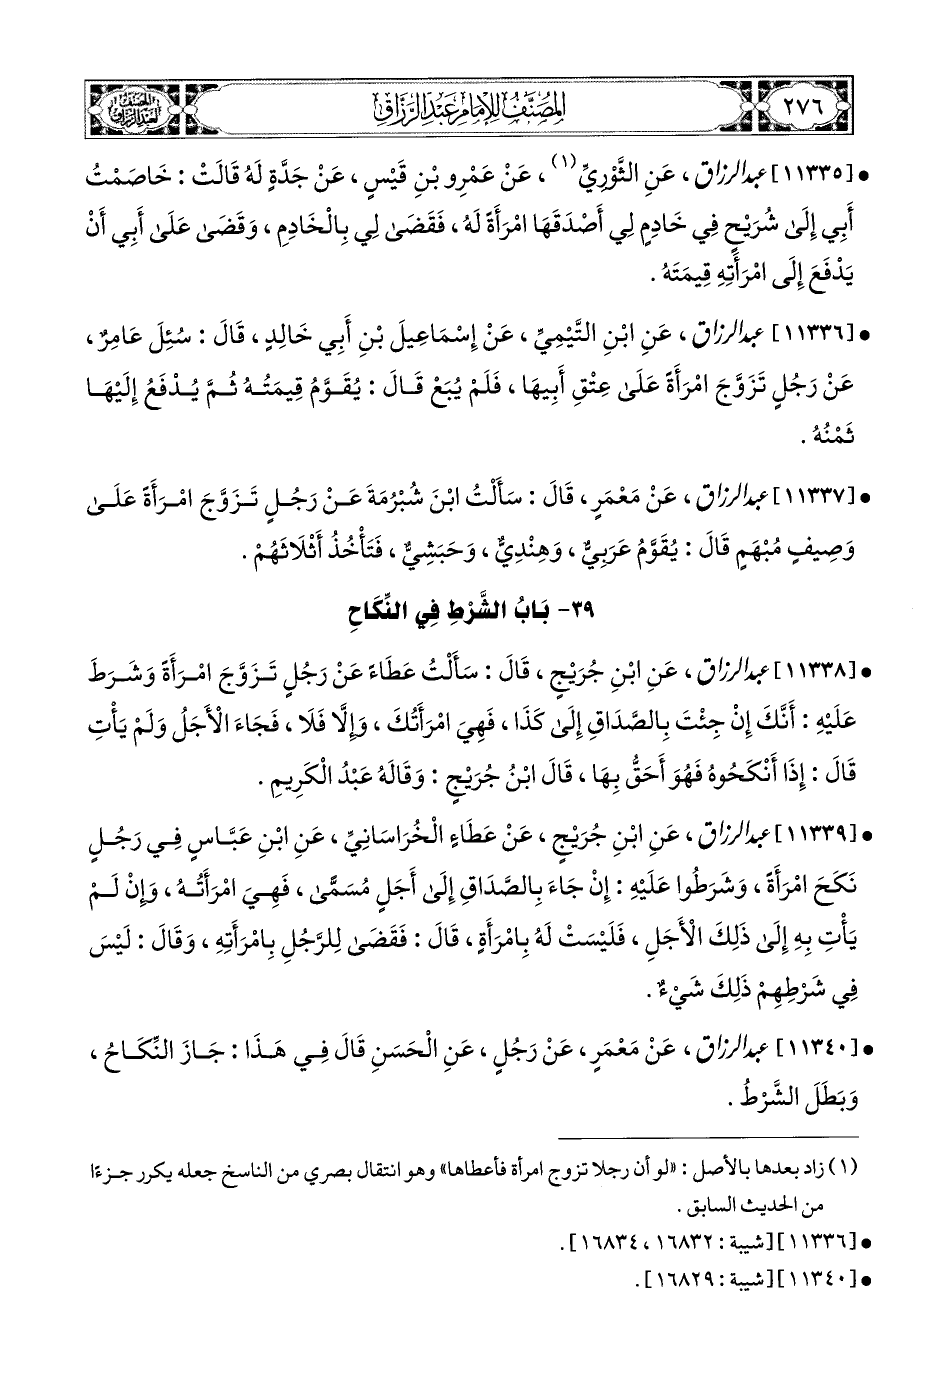 ٢٧٦
المصنف للإمام عبد الرزاق
• [١١٣٣٥] عبد الرزاق ، عَنِ الثَّوْرِيِّ(١) ، عَنْ عَمْرِو بْنِ قَيْسٍ ، عَنْ جَدَّةٍ لَهُ قَالَتْ : خَاصَمْتُ
أَبِي إِلَىٰ شُرَيْحٍ فِي خَادِمٍ لِي أَصْدَقَهَا امْرَأَةً لَهُ ، فَقَضَىٰ لِي بِالْخَادِمِ ، وَقَضَىٰ عَلَىٰ أَبِي أَنْ
يَدْفَعَ إِلَى امْرَأَتِهِ قِيمَتَهُ .
• [١١٣٣٦] عبد الرزاق ، عَنِ ابْنِ التَّيْمِيِّ ، عَنْ إِسْمَاعِيلَ بْنِ أَبِي خَالِدٍ ، قَالَ : سُئِلَ عَامِرٌ ،
عَنْ رَجُلٍ تَزَوَّجَ امْرَأَةً عَلَىٰ عِتْقِ أَبِيهَا ، فَلَمْ يُبَعْ قَالَ : يُقَوَّمُ قِيمَتُهُ ثُمَّ يُدْفَعُ إِلَيْهَا
ثَمْنُهُ .
• [١١٣٣٧] عبد الرزاق ، عَنْ مَعْمَرٍ ، قَالَ : سَأَلْتُ ابْنَ شُبْرُمَةَ عَنْ رَجُلٍ تَزَوَّجَ امْرَأَةً عَلَىٰ
وَصِيفٍ مُبْهَمٍ قَالَ : يُقَوَّمُ عَرَبِيٌّ ، وَهِنْدِيٌّ ، وَحَبَشِيٌّ ، فَتَأْخُذُ أَثْلَاثَهُمْ .
٣٩- بَابُ الشَّرْطِ فِي النِّكَاحِ
• [١١٣٣٨] عبد الرزاق ، عَنِ ابْنِ جُرَيْجٍ ، قَالَ : سَأَلْتُ عَطَاءً عَنْ رَجُلٍ تَزَوَّجَ امْرَأَةً وَشَرَطَ
عَلَيْهِ : أَنَّكَ إِنْ جِئْتَ بِالصَّدَاقِ إِلَىٰ كَذَا ، فَهِيَ امْرَأَتُكَ ، وَإِلَّا فَلَا ، فَجَاءَ الْأَجَلُ وَلَمْ يَأْتِ
قَالَ : إِذَا أَنْكَحُوهُ فَهُوَ أَحَقُّ بِهَا ، قَالَ ابْنُ جُرَيْجٍ : وَقَالَهُ عَبْدُ الْكَرِيمِ .
• [١١٣٣٩] عبد الرزاق ، عَنِ ابْنِ جُرَيْجٍ ، عَنْ عَطَاءٍ الْخُرَاسَانِيِّ ، عَنِ ابْنِ عَبَّاسٍ فِي رَجُلٍ
نَكَحَ امْرَأَةً ، وَشَرَطُوا عَلَيْهِ : إِنْ جَاءَ بِالصَّدَاقِ إِلَىٰ أَجَلٍ مُسَمًّى ، فَهِيَ امْرَأَتُهُ ، وَإِنْ لَمْ
يَأْتِ بِهِ إِلَىٰ ذَلِكَ الْأَجَلِ ، فَلَيْسَتْ لَهُ بِامْرَأَةٍ ، قَالَ : فَقَضَىٰ لِلرَّجُلِ بِامْرَأَتِهِ ، وَقَالَ : لَيْسَ
فِي شَرْطِهِمْ ذَلِكَ شَيْءٌ .
• [١١٣٤٠] عبد الرزاق ، عَنْ مَعْمَرٍ ، عَنْ رَجُلٍ ، عَنِ الْحَسَنِ قَالَ فِي هَذَا : جَازَ النِّكَاحُ ،
وَبَطَلَ الشَّرْطُ .
(١) زاد بعدها بالأصل : «لو أن رجلا تزوج امرأة فأعطاها» وهو انتقال بصري من الناسخ جعله يكرر جزءًا
من الحديث السابق .
• [١١٣٣٦] [شيبة : ١٦٨٣٢ ، ١٦٨٣٤] .
• [١١٣٤٠] [شيبة : ١٦٨٢٩] .